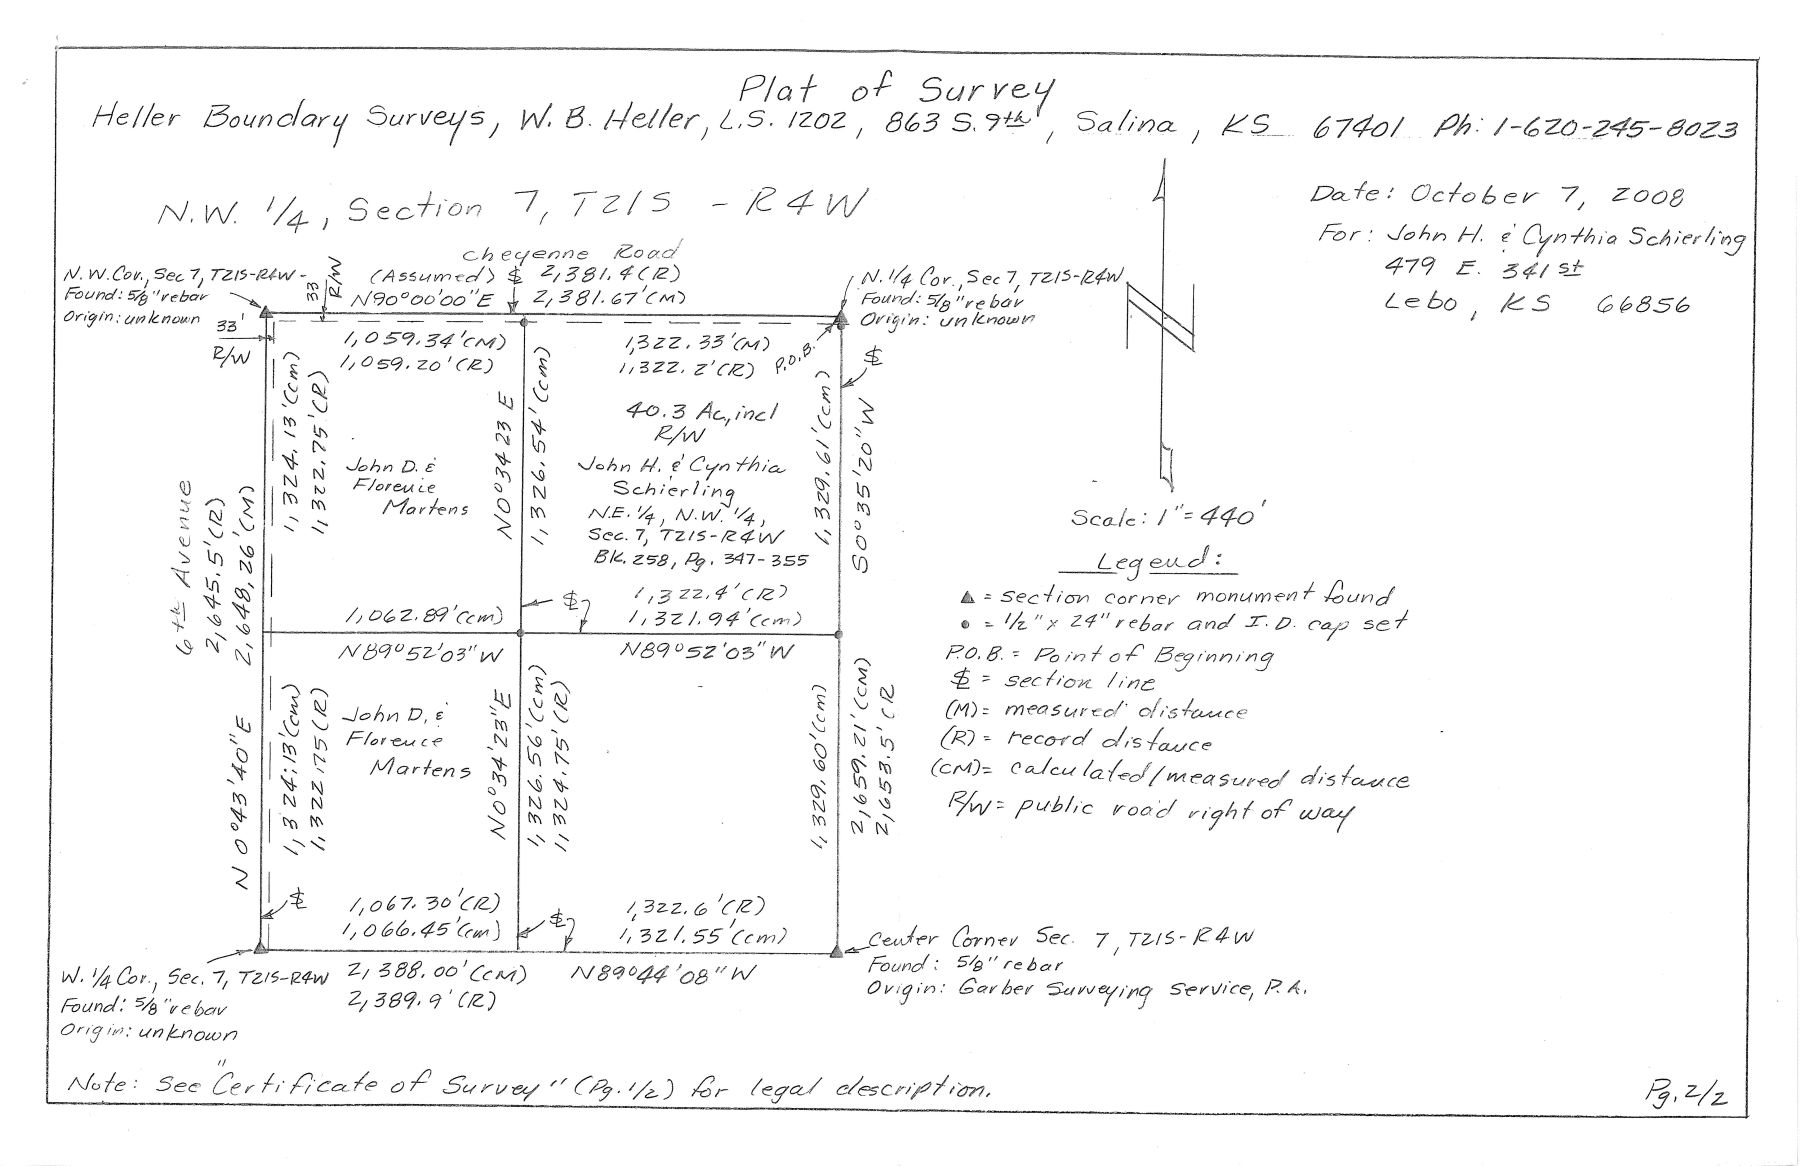 Plat of Survey
Heller Boundary Surveys, W. B. Heller, L.S. 1202, 863 S. 9th, Salina, KS 67401 Ph: 1-620-245-8023
N.W. 1/4, Section 7, T21S - R4W
Date: October 7, 2008
For: John H. & Cynthia Schierling
479 E. 341st
Lebo, KS 66856
Cheyenne Road
(Assumed) 2,381.4(R)
N90°00'00"E 2,381.67'(M)
N.W. Cor., Sec 7, T21S-R4W-
Found: 5/8" rebar
Origin: unknown
33'
R/W
33
R/W
N. 1/4 Cor., Sec 7, T21S-R4W
Found: 5/8" rebar
Origin: unknown
1,059.34'(M)
1,059.20'(R)
1,322.33'(M)
1,322.2'(R)
P.O.B.
1,324.13'(cm)
1,322.75'(R)
N0°34 23 E
1,326.54'(cm)
1,329.61'(cm)
S0°35'20"W
40.3 Ac, incl
R/W
John D. &
Florenie
Martens
John H. & Cynthia
Schierling
N.E. 1/4, N.W. 1/4,
Sec. 7, T21S-R4W
Bk. 258, Pg. 347-355
6th Avenue
2,645.5'(R)
2,648.26'(M)
N 0°43'40"E
1,062.89'(cm)
N89°52'03"W
1,322.4'(R)
1,321.94'(cm)
N89°52'03"W
1,324.13'(cm)
1,322.75(R)
John D. &
Florence
Martens
N0°34'23"E
1,326.56'(cm)
1,324.75'(R)
1,329.60'(cm)
2,659.21'(CM)
2,653.5'(R
1,067.30'(R)
1,066.45'(cm)
1,322.6'(R)
1,321.55'(cm)
W. 1/4 Cor., Sec. 7, T21S-R4W
Found: 5/8" rebar
Origin: unknown
2,388.00'(CM)
2,389.9'(R)
N89°44'08"W
Center Corner Sec. 7, T21S-R4W
Found: 5/8" rebar
Origin: Garber Surveying Service, P.A.
Scale: 1" = 440'
Legend:
▲ = section corner monument found
● = 1/2" x 24" rebar and I.D. cap set
P.O.B. = Point of Beginning
= section line
(M) = measured distance
(R) = record distance
(CM) = calculated/measured distance
R/W = public road right of way
Note: See "Certificate of Survey" (Pg. 1/2) for legal description.
Pg. 2/2